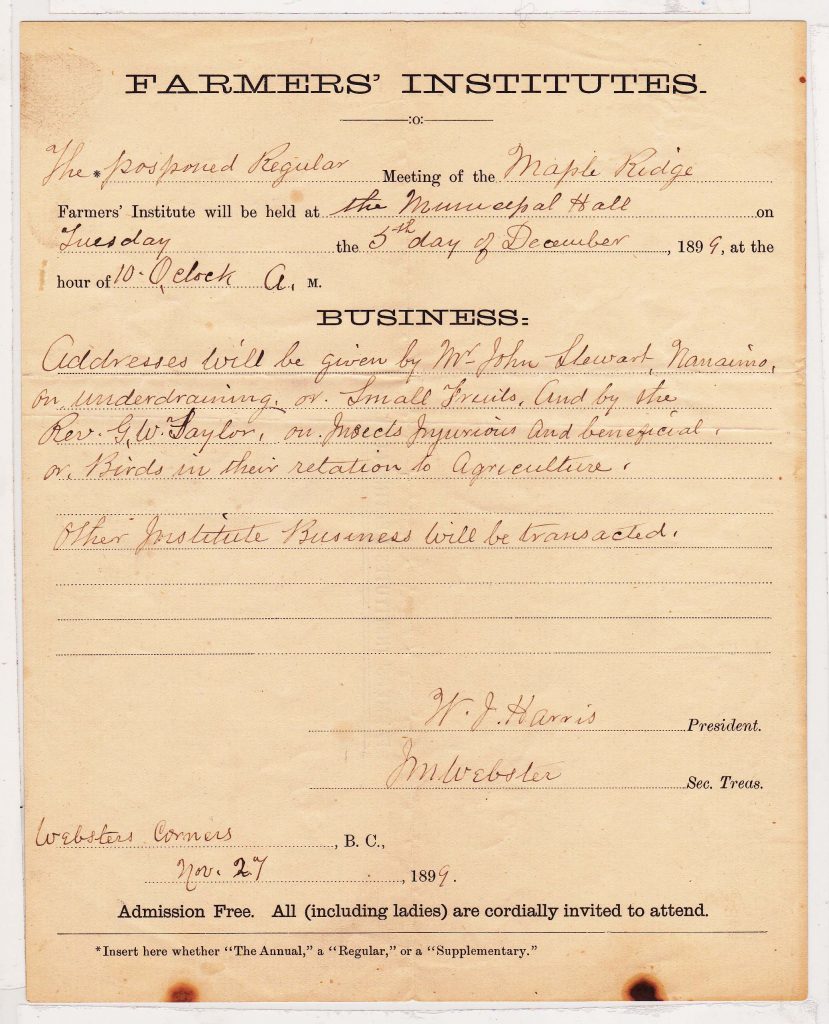 FARMERS' INSTITUTES.
:o:
The * posponed Regular Meeting of the Maple Ridge
Farmers' Institute will be held at the Municipal Hall on
Tuesday the 5th day of December, 1899, at the
hour of 10. O,clock A. M.
BUSINESS:
Addresses will be given by Mr John Stewart, Nanaimo,
on underdraining, or Small Fruits, And by the
Rev. G. W. Taylor, on Insects Injurious and beneficial,
or, Birds in their relation to Agriculture,
Other Institute Business will be transacted.
W. J. Harris President.
J M Webster Sec. Treas.
Websters Corners, B. C.,
Nov. 27, 1899.
Admission Free. All (including ladies) are cordially invited to attend.
*Insert here whether "The Annual," a "Regular," or a "Supplementary."